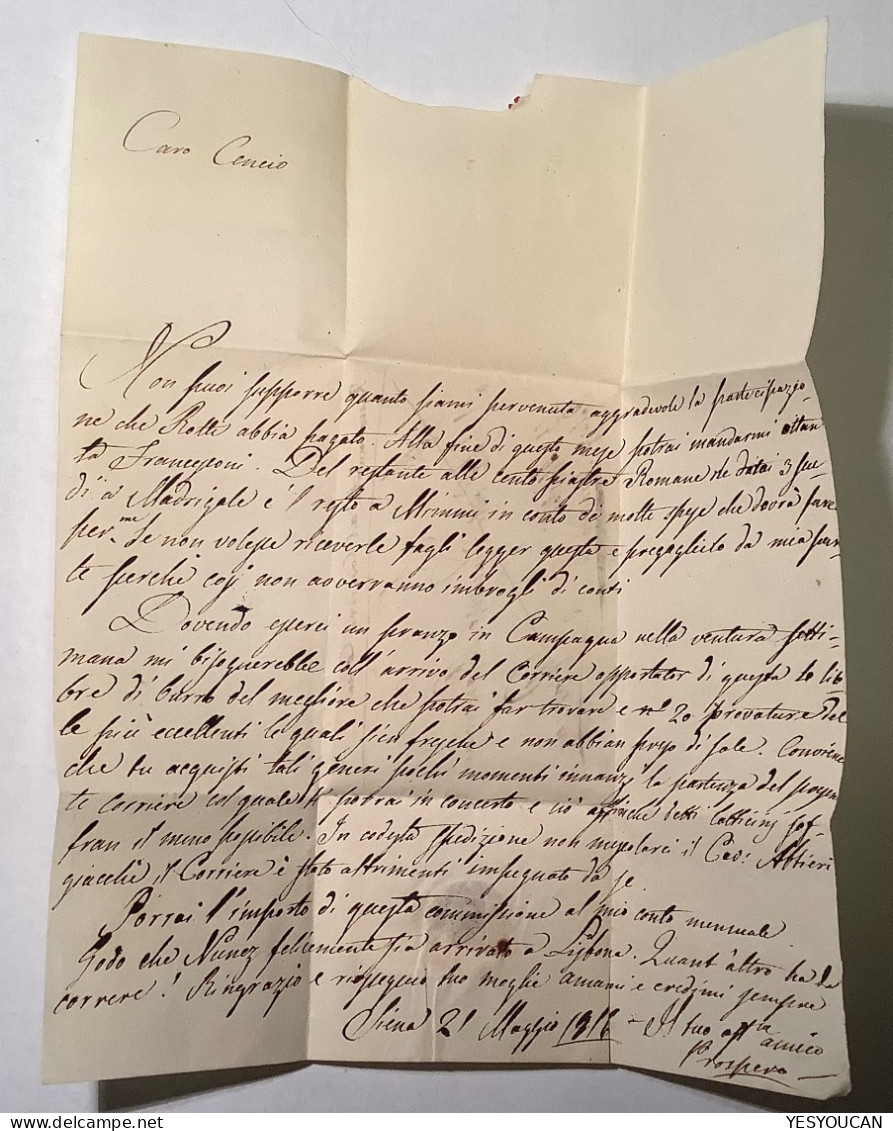 Caro Cencio
Non puoi supporre quanto siami pervenuta aggradevole la partecipazio-
ne che Rotti abbia pagato. Alla fine di questo mese potrai mandarmi ottan
ta Francesconi. Del restante alle cento piastre Romane ne darai 3 scu-
di a Madrigale e 'l resto a Mimmi in conto di molte spese che dovrà fare
per me. Se non volesse riceverle fagli legger questa e pregaglielo da mia par-
te perchè così non avverranno imbrogli di conti
Dovendo esserci un pranzo in Campagna nella ventura setti-
mana mi bisognerebbe coll'arrivo del Corriere apportator di questa 10 lib-
bre di burro del megliore che potrai far trovare e nº 20 provature del
le più eccellenti le quali sien fresche e non abbian preso di sale. Conviene
che tu acquisti tali generi pochi momenti innanzi la partenza del
te corriere col quale ti potrai in concerto e ciò affinche detti latticinj sof-
fran il meno possibile. In codesta spedizione non mescolarci il Cav: Altieri
giacchè il Corriere è stato altrimenti impegnato da se
Porrai l'importo di questa commissione al mio conto mensuale
Godo che Nunez felicemente sia arrivato a Lisbona. Quant'altro ha da
correre! Ringrazio e riossequio tuo moglie amami e credimi sempre
Siena 21 Maggio 1816 - Il tuo affmo amico
Prospero
YESYOUCAN